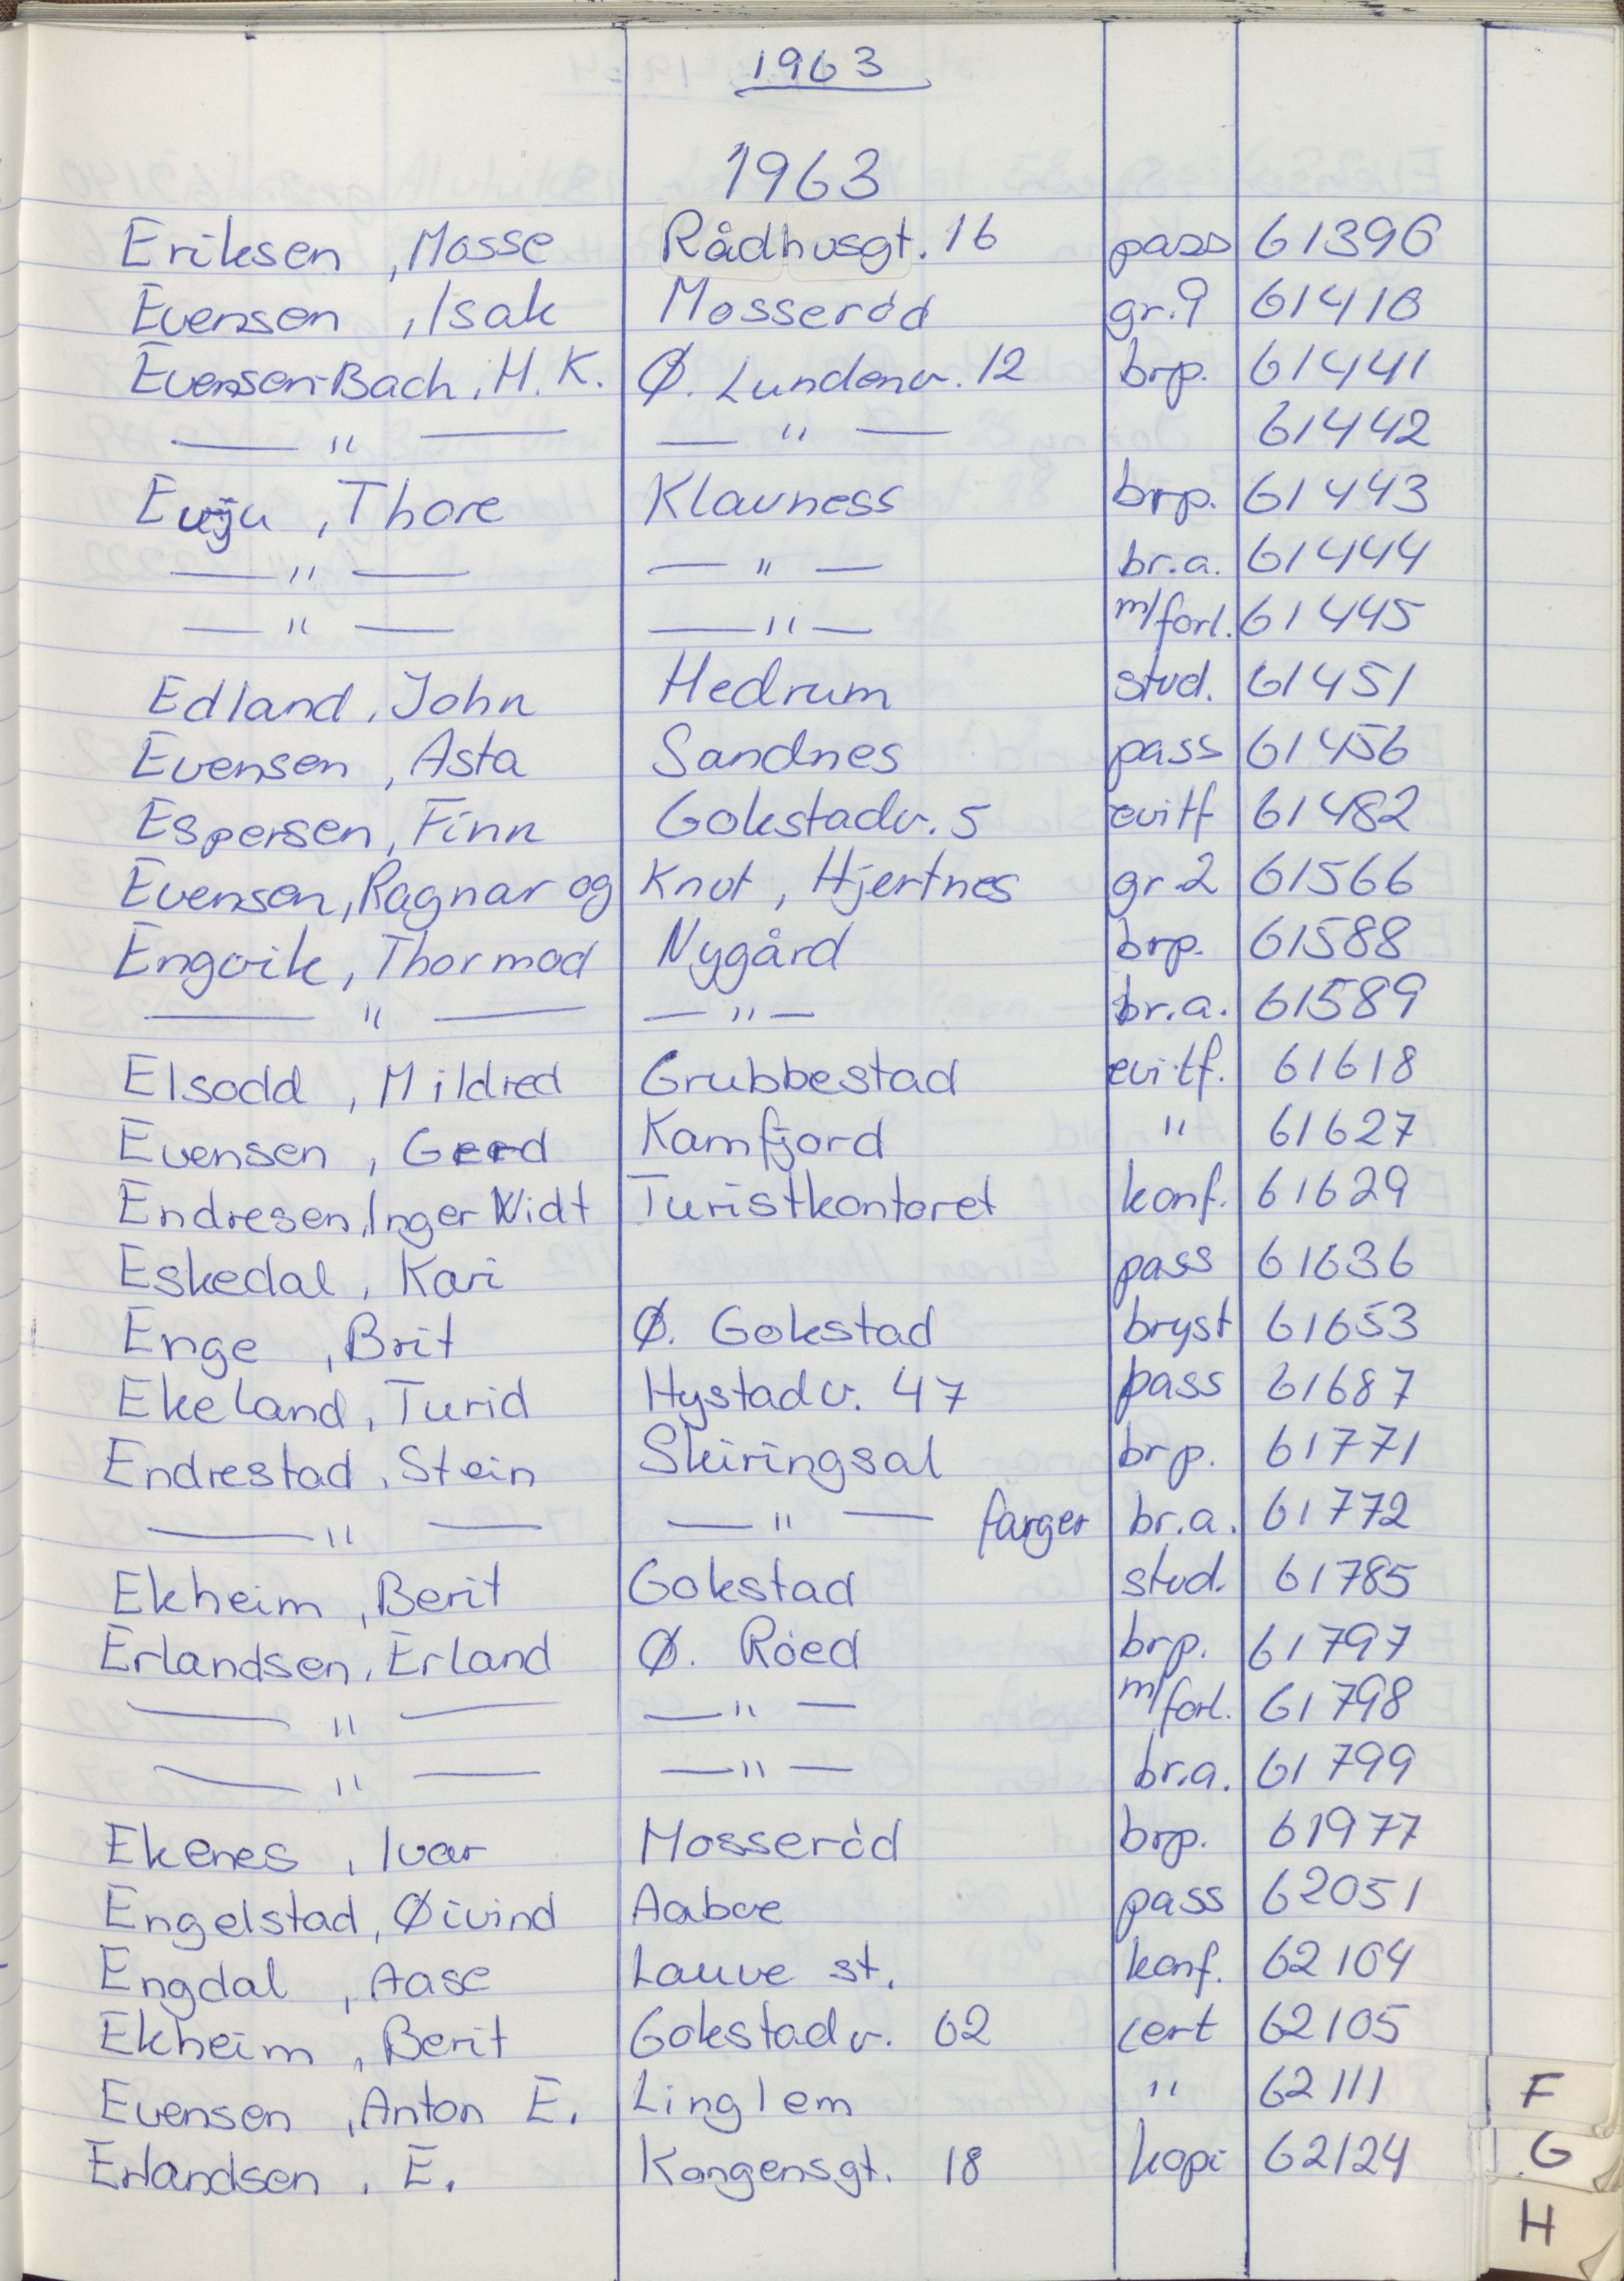 1963
1963
Eriksen, Mosse Rådhusgt. 16 pass 61396
Evensen, Isak Mosserød gr.9 61416
Evensen-Bach, H. K. Ø. Lundenv. 12 brp. 61441
— " — — " — 61442
Evju, Thore Klavness brp. 61443
— " — — " — br.a. 61444
— " — — " — m/forl. 61445
Edland, John Hedrum stud. 61451
Evensen, Asta Sandnes pass 61456
Espersen, Finn Gokstadv. 5 evitf 61482
Evensen, Ragnar og Knut, Hjertnes gr.2 61566
Engvik, Thormod Nygård brp. 61588
— " — — " — br.a. 61589
Elsodd, Mildred Grubbestad evitf. 61618
Evensen, Gerd Kamfjord " 61627
Endresen, Inger Widt Turistkontoret konf. 61629
Eskedal, Kari pass 61636
Enge, Brit Ø. Gokstad bryst 61653
Ekeland, Turid Hystadv. 47 pass 61687
Endrestad, Stein Skiringsal brp. 61771
— " — — " — farger br.a. 61772
Ekheim, Berit Gokstad stud. 61785
Erlandsen, Erland Ø. Røed brp. 61797
— " — — " — m/forl. 61798
— " — — " — br.a. 61799
Ekenes, Ivar Mosserød brp. 61977
Engelstad, Øivind Aaboe pass 62051
Engdal, Aase Lauve st. konf. 62104
Ekheim, Berit Gokstadv. 62 cert 62105
Evensen, Anton E. Linglem " 62111
Erlandsen, E. Kongensgt. 18 kopi 62124
F
G
H